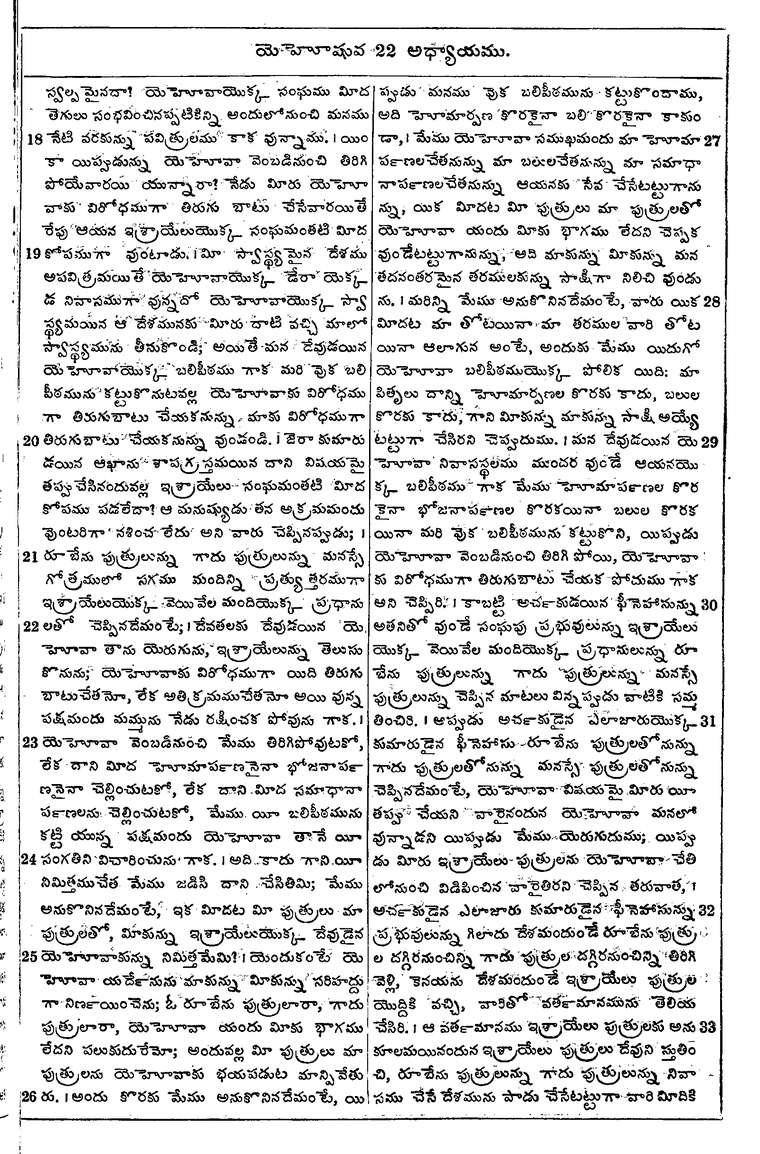 యెహోషువ 22 అధ్యాయము.
స్వల్పమైనదా? యెహోవాయొక్క సంఘము మీద
తెగులు సంభవించినప్పటికిన్ని అందులోనుంచి మనము
18 నేటి వరకున్ను పవిత్రులము కాక వున్నాము. । యిం
కా యిప్పుడున్ను యెహోవా వెంబడినుంచి తిరిగి
పోయేవారయి యున్నారా? నేడు మీరు యెహో
వాకు విరోధముగా తిరుగు బాటు చేసేవారయితే
రేపు ఆయన ఇశ్రాయేలుయొక్క సంఘమంతటి మీద
19 కోపముగా వుంటాడు. । మీ స్వాస్థ్యమైన దేశము
అపవిత్రమయితే యెహోవాయొక్క డేరా యెక్క
డ నివాసముగా వున్నదో యెహోవాయొక్క స్వా
స్థ్యమయిన ఆ దేశమునకు మీరు దాటి వచ్చి మాలో
స్వాస్థ్యమును తీనుకొండి; అయితే మన దేవుడయిన
యెహోవాయొక్క బలిపీఠము గాక మరి వొక బలి
పీఠమును కట్టుకొనుటవల్ల యెహోవాకు విరోధము
గా తిరుగుబాటు చేయకనున్ను మాకు విరోధముగా
20 తిరుగుబాటు చేయకనున్ను వుండండి. । జెరా కుమారు
డయిన ఆఖాను శాపగ్రస్తమయిన దాని విషయమై
తప్పు చేసినందువల్ల ఇశ్రాయేలు సంఘమంతటి మీద
కోపము పడలేదా? ఆ మనుష్యుడు తన అక్రమమందు
వొంటరిగా నశించ లేదు అని వారు చెప్పినప్పడు; ।
21 రూబేను పుత్రులున్ను గాదు పుత్రులున్ను మనస్సే
గోత్రములో సగము మందిన్ని ప్రత్యుత్తరముగా
ఇశ్రాయేలుయొక్క వెయివేల మందియొక్క ప్రధాను
22 లతో చెప్పినదేమంటే; । దేవతలకు దేవుడయిన యె
హోవా తాను యెరుగును, ఇశ్రాయేలున్ను తెలుసు
కొనును; యెహోవాకు విరోధముగా యిది తిరుగు
బాటుచేతనో, లేక అతిక్రమముచేతనో అయి వున్న
పక్షమందు మమ్మును నేడు రక్షించక పోవును గాక. ।
23 యెహోవా వెంబడినుంచి మేము తిరిగిపోవుటకో,
లేక దాని మీద హోమార్పణనైనా భోజనార్ప
ణనైనా చెల్లించుటకో, లేక దాని మీద సమాధానా
ర్పణలను చెల్లించుటకో, మేము యీ బలిపీఠమును
కట్టి యున్న పక్షమందు యెహోవా తానే యీ
24 సంగతిని విచారించును గాక. । అది కాదు గాని యీ
నిమిత్తముచేత మేము జడిసి దాని చేసితిమి; మేము
అనుకొనినదేమంటే, ఇక మీదట మీ పుత్రులు మా
పుత్రులతో, మీకున్ను ఇశ్రాయేలుయొక్క దేవుడైన
25 యెహోవాకున్ను నిమిత్తమేమి? । యెందుకంటే యె
హోవా యర్దేనును మాకున్ను మీకున్ను సరిహద్దు
గా నిర్ణయించెను; ఓ రూబేను పుత్రులారా, గాదు
పుత్రులారా, యెహోవా యందు మీకు భాగము
లేదని పలుకుదురేమో; అందువల్ల మీ పుత్రులు మా
పుత్రులను యెహోవాకు భయపడుట మాన్పివేతు
26 రు. । అందు కొరకు మేము అనుకొనినదేమంటే, యి
ప్పుడు మనము వొక బలిపీఠమును కట్టుకొందాము,
అది హోమార్పణ కొరకైనా బలి కొరకైనా కాకుం
డా, । మేము యెహోవా సముఖమందు మా హోమా 27
ర్పణలచేతనున్ను మా బలులచేతనున్ను మా సమాధా
నార్పణలచేతనున్ను ఆయనకు సేవ చేసేటట్టుగాను
న్ను, యిక మీదట మీ పుత్రులు మా పుత్రులతో
యెహోవా యందు మీకు భాగము లేదని చెప్పక
వుండేటట్టుగానున్ను; అది మాకున్ను మీకున్ను మన
తదనంతరమైన తరములకున్ను సాక్షిగా నిలిచి వుండు
ను. । మరిన్ని మేము అనుకొనినదేమంటే, వారు యిక 28
మీదట మా తోటయినా మా తరముల వారి తోట
యినా ఆలాగున అంటే, అందుకు మేము యిదుగో
యెహోవా బలిపీఠముయొక్క పోలిక యిది; మా
పితృలు దాన్ని హోమార్పణల కొరకు కాదు, బలుల
కొరకు కాదు, గాని మీకున్న మాకున్ను సాక్షి అయ్యే
టట్టుగా చేసిరని చెప్పుదుము. । మన దేవుడయిన యె 29
హోవా నివాసస్థలము ముందర వుండే ఆయనయొ
క్క బలిపీఠము గాక మేము హోమార్పణల కొర
కైనా భోజనార్పణల కొరకయినా బలుల కొరక
యినా మరి వొక బలిపీఠమును కట్టుకొని, యిప్పుడు
యెహోవా వెంబడినుంచి తిరిగి పోయి, యెహోవా
కు విరోధముగా తిరుగుబాటు చేయక పోదుము గాక
అని చెప్పిరి. । కాబట్టి అర్చకుడయిన ఫీనెహాసున్ను 30
అతనితో వుండే సంఘపు ప్రభువులున్ను ఇశ్రాయేలు
యొక్క వెయివేల మందియొక్క ప్రధానులున్ను రూ
బేను పుత్రులున్ను గాదు పుత్రులున్ను మనస్సే
పుత్రులున్ను చెప్పిన మాటలు విన్నప్పడు వాటికి సమ్మ
తించిరి. । అప్పుడు అర్చకుడైన ఎలాజారుయొక్క 31
కుమారుడైన ఫీనెహాసు రూబేను పుత్రులతోనున్ను
గాదు పుత్రులతోనున్ను మనస్సే పుత్రులతోనున్ను
చెప్పినదేమంటే, యెహోవా విషయమై మీరు యీ
తప్పు చేయని వారైనందున యెహోవా మనలో
వున్నాడని యిప్పుడు మేము యెరుగుదుము; యిప్పు
డు మీరు ఇశ్రాయేలు పుత్రులను యెహోవా చేతి
లోనుంచి విడిపించిన వారైతిరని చెప్పిన తరువాత, ।
అర్చకుడైన ఎలాజారు కుమారుడైన ఫీనెహాసున్ను 32
ప్రభువులున్ను గిలాదు దేశమందుండే రూబేను పుత్రు
ల దగ్గిరనుంచిన్ని గాదు పుత్రుల దగ్గిరనుంచిన్ని తిరిగి
వెళ్లి, కెనయను దేశమందుండే ఇశ్రాయేలు పుత్రుల
యొద్దికి వచ్చి, వారితో వర్తమానమును తెలియ
చేసిరి. । ఆ వర్తమానము ఇశ్రాయేలు పుత్రులకు అను 33
కూలమయినందున ఇశ్రాయేలు పుత్రులు దేవుని స్తుతిం
చి, రూబేను పుత్రులున్ను గాదు పుత్రులున్ను నివా
సము చేసే దేశమును పాడు చేసేటట్టుగా వారి మీదికి